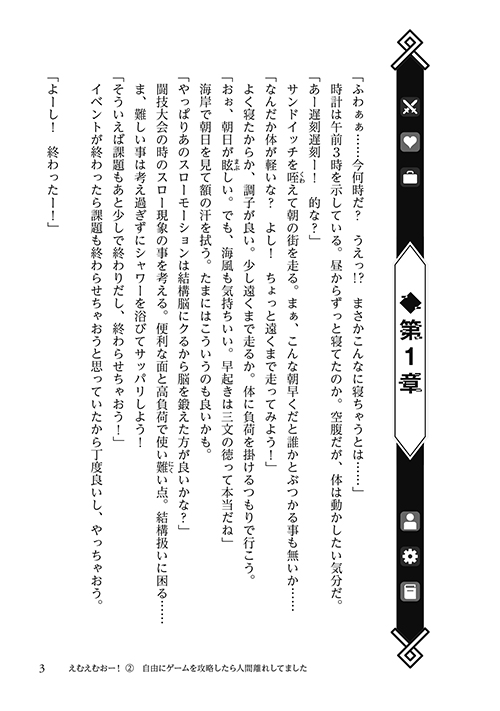 第1章
「ふわぁぁ……今何時だ？　うえっ!?　まさかこんなに寝ちゃうとは……」
時計は午前３時を示している。昼からずっと寝てたのか。空腹だが、体は動かしたい気分だ。
「あー遅刻遅刻ー！　的な？」
サンドイッチを咥えて朝の街を走る。まぁ、こんな朝早くだと誰かとぶつかる事も無いか……
「なんだか体が軽いな？　よし！　ちょっと遠くまで走ってみよう！」
よく寝たからか、調子が良い。少し遠くまで走るか。体に負荷を掛けるつもりで行こう。
「おぉ、朝日が眩しい。でも、海風も気持ちいい。早起きは三文の徳って本当だね」
海岸で朝日を見て額の汗を拭う。たまにはこういうのも良いかも。
「やっぱりあのスローモーションは結構脳にクるから脳を鍛えた方が良いかな？」
闘技大会の時のスロー現象の事を考える。便利な面と高負荷で使い難い点。結構扱いに困る……
ま、難しい事は考え過ぎずにシャワーを浴びてサッパリしよう！
「そういえば課題もあと少しで終わりだし、終わらせちゃおう！」
イベントが終わったら課題も終わらせちゃおうと思っていたから丁度良いし、やっちゃおう。
「よーし！　終わったー！」
3　えむえむおー！ ②　自由にゲームを攻略したら人間離れしてました